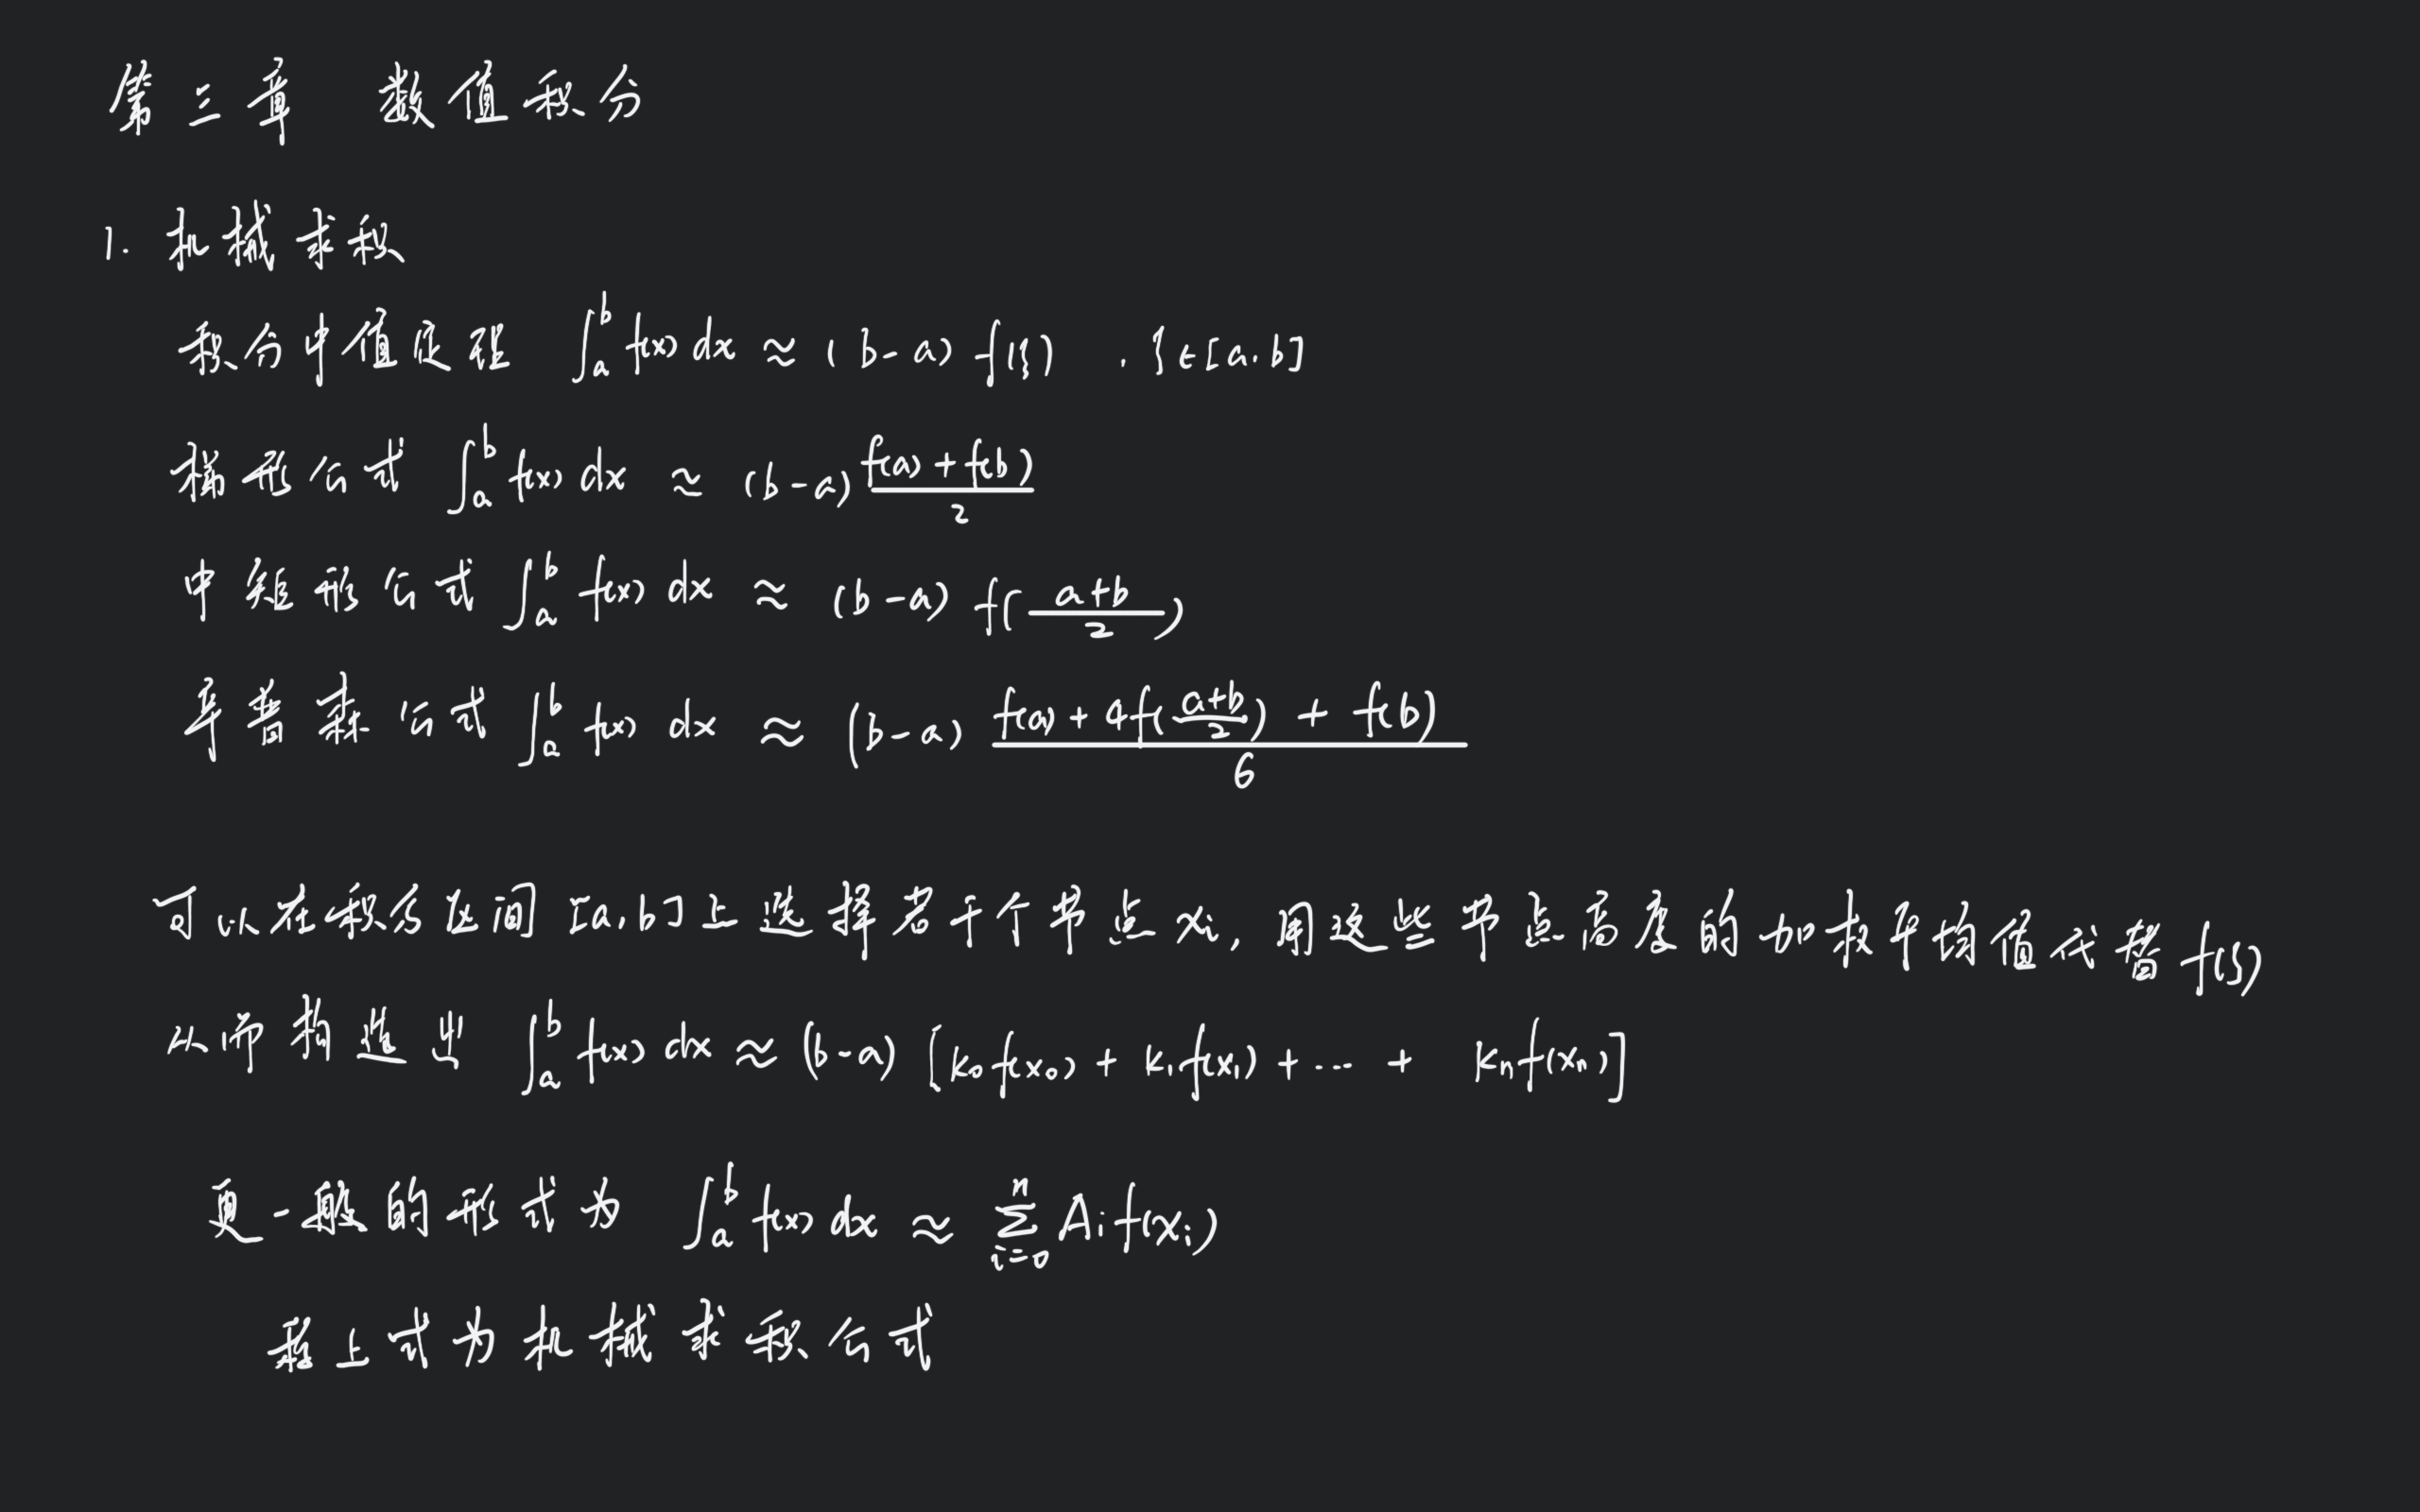 第三章 数值积分
1. 机械求积
积分中值定理 ∫_a^b f(x) dx ≈ (b-a) f(ξ) , ξ∈[a,b]
梯形公式 ∫_a^b f(x) dx ≈ (b-a) \frac{f(a)+f(b)}{2}
中矩形公式 ∫_a^b f(x) dx ≈ (b-a) f(\frac{a+b}{2})
辛普森公式 ∫_a^b f(x) dx ≈ (b-a) \frac{f(a)+4f(\frac{a+b}{2})+f(b)}{6}
可以在积分区间[a,b]上选择若干个节点xᵢ, 用这些节点高度的加权平均值代替f(ξ)
从而构造出 ∫_a^b f(x) dx ≈ (b-a) [k₀f(x₀) + k₁f(x₁) + ... + kₙf(xₙ)]
更一般的形式为 ∫_a^b f(x) dx ≈ ∑_{i=0}^n Aᵢf(xᵢ)
称上式为机械求积公式